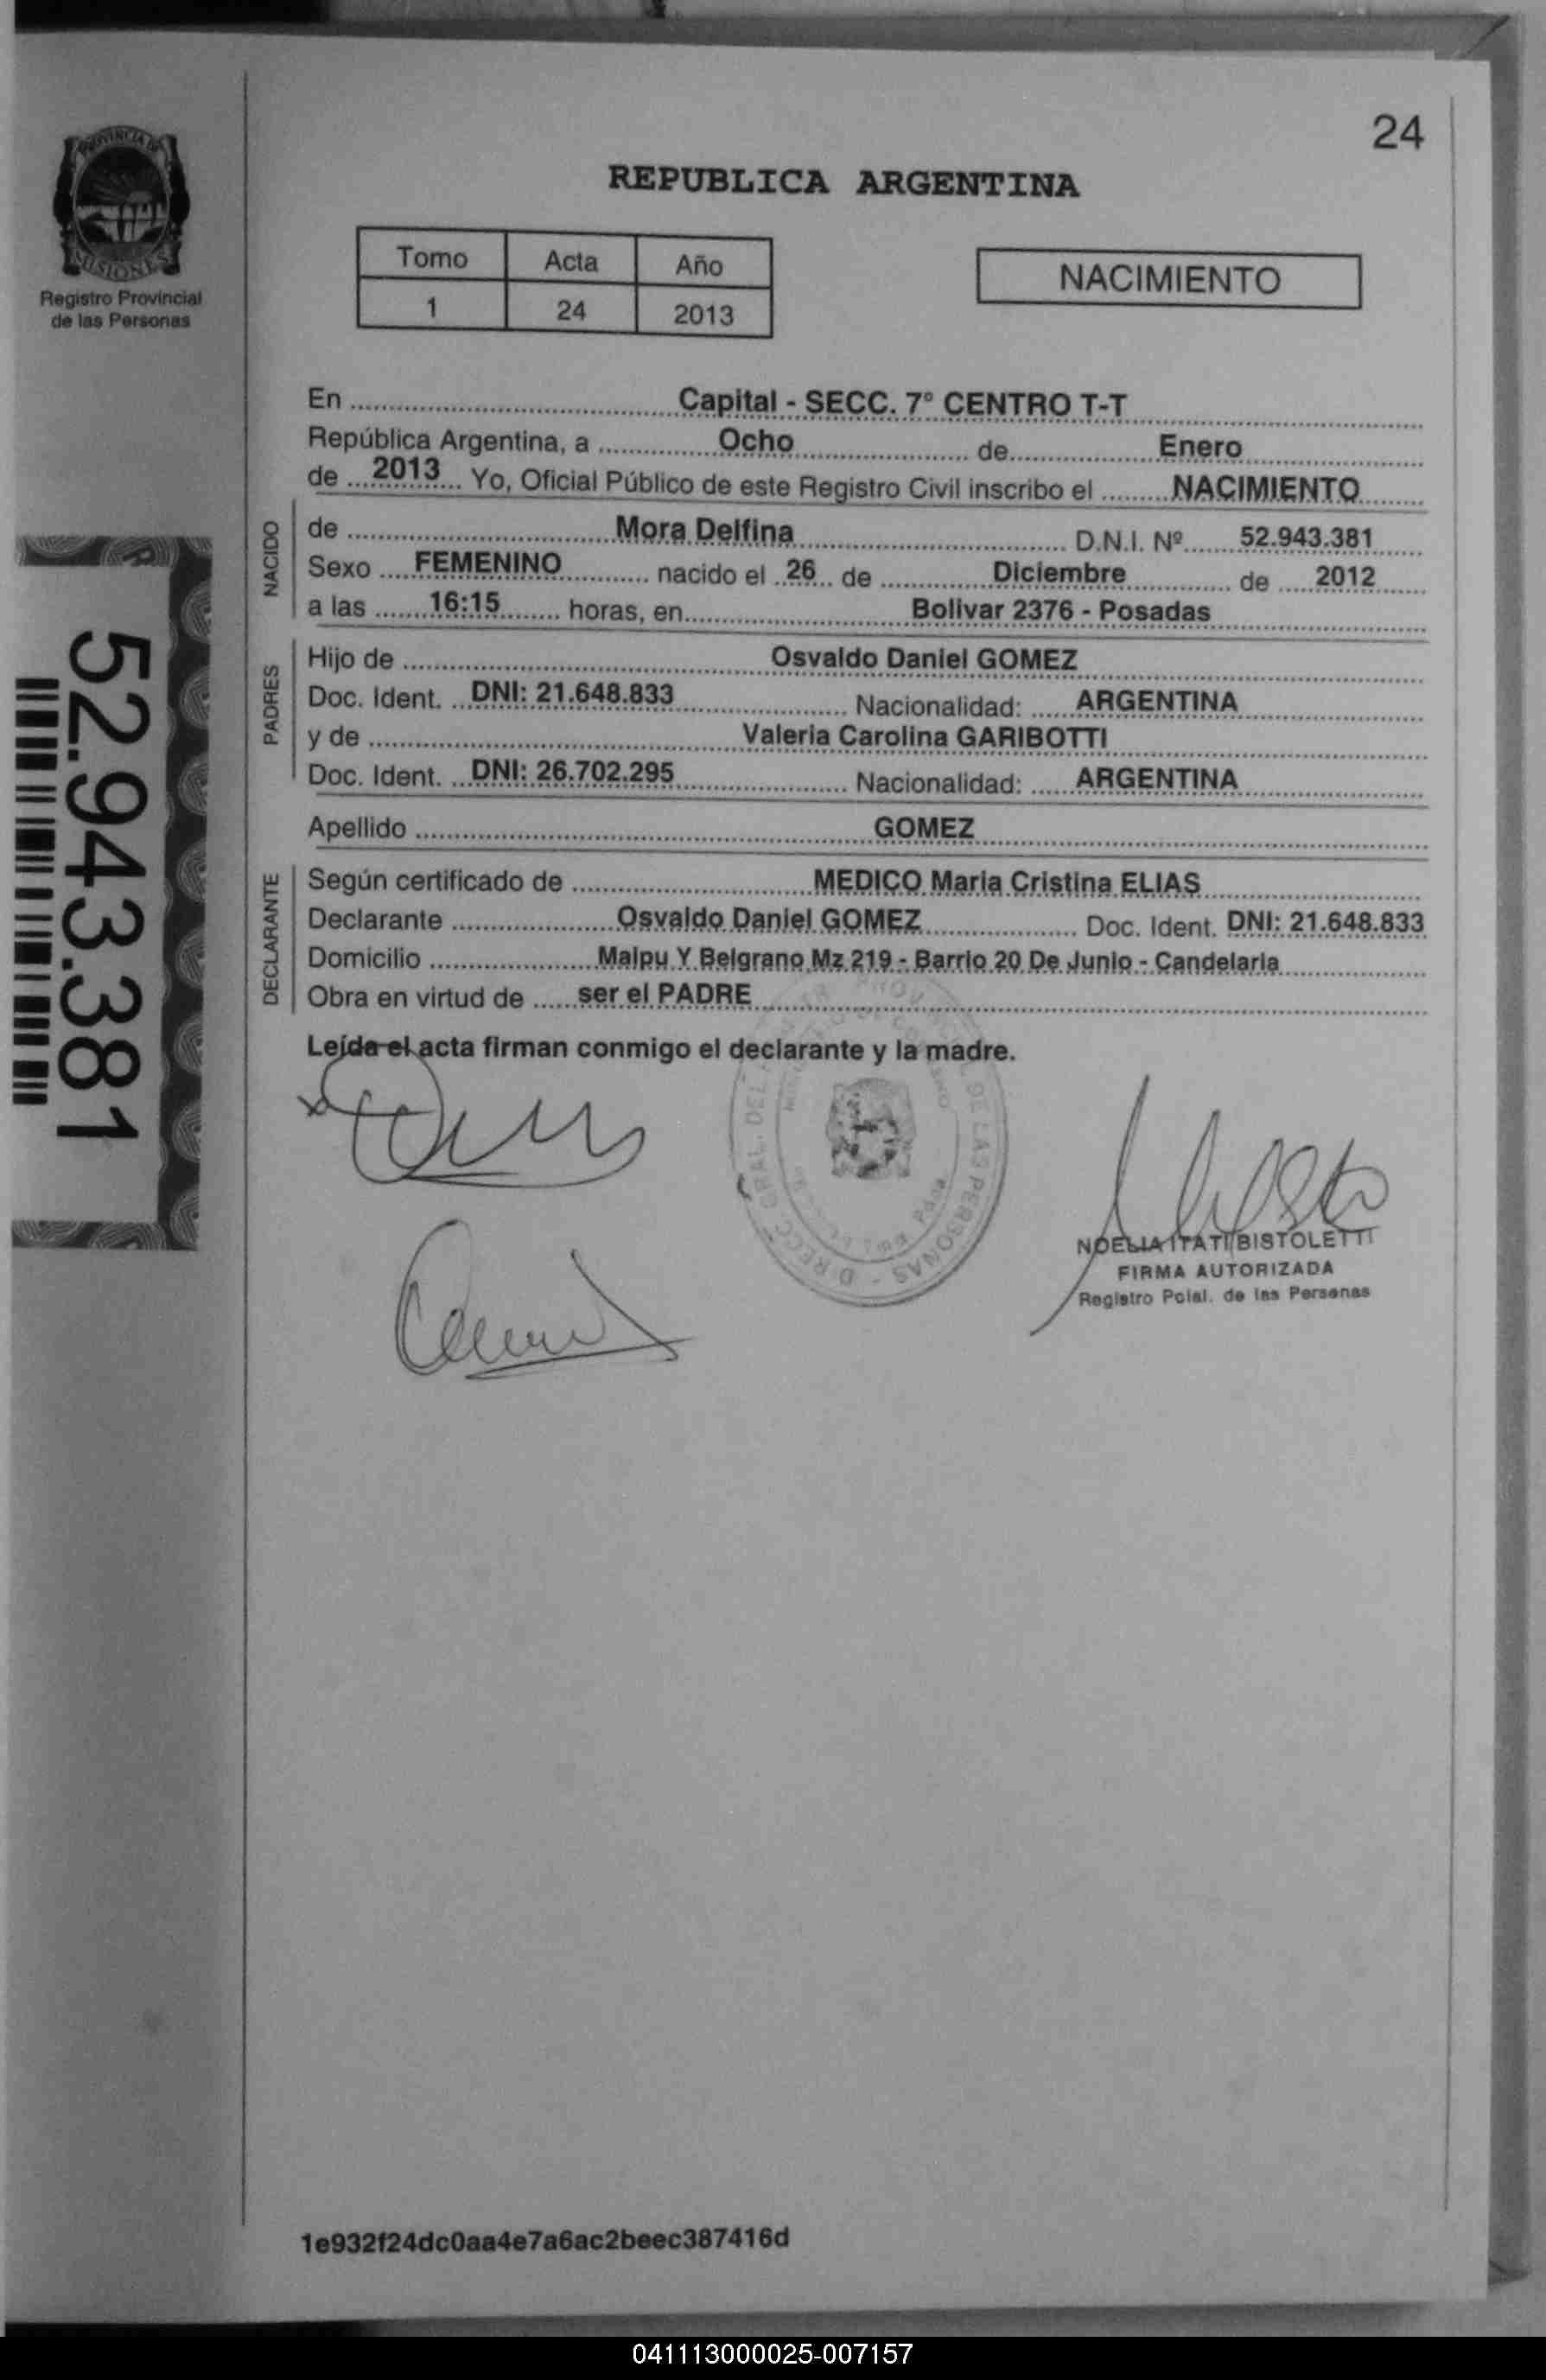 PROVINCIA DE
MISIONES
Registro Provincial
de las Personas
24
REPUBLICA ARGENTINA
Tomo Acta Año
1 24 2013
NACIMIENTO
En Capital - SECC. 7º CENTRO T-T
República Argentina, a Ocho de Enero
de 2013 Yo, Oficial Público de este Registro Civil inscribo el NACIMIENTO
NACIDO
de Mora Delfina D.N.I. Nº 52.943.381
Sexo FEMENINO nacido el 26 de Diciembre de 2012
a las 16:15 horas, en Bolivar 2376 - Posadas
PADRES
Hijo de Osvaldo Daniel GOMEZ
Doc. Ident. DNI: 21.648.833 Nacionalidad: ARGENTINA
y de Valeria Carolina GARIBOTTI
Doc. Ident. DNI: 26.702.295 Nacionalidad: ARGENTINA
Apellido GOMEZ
DECLARANTE
Según certificado de MEDICO Maria Cristina ELIAS
Declarante Osvaldo Daniel GOMEZ Doc. Ident. DNI: 21.648.833
Domicilio Maipu Y Belgrano Mz 219 - Barrio 20 De Junio - Candelaria
Obra en virtud de ser el PADRE
Leída el acta firman conmigo el declarante y la madre.
52.943.381
DE LAS PERSONAS
NOELIA ITATI BISTOLETTI
FIRMA AUTORIZADA
Registro Pcial. de las Personas
1e932f24dc0aa4e7a6ac2beec387416d
041113000025-007157